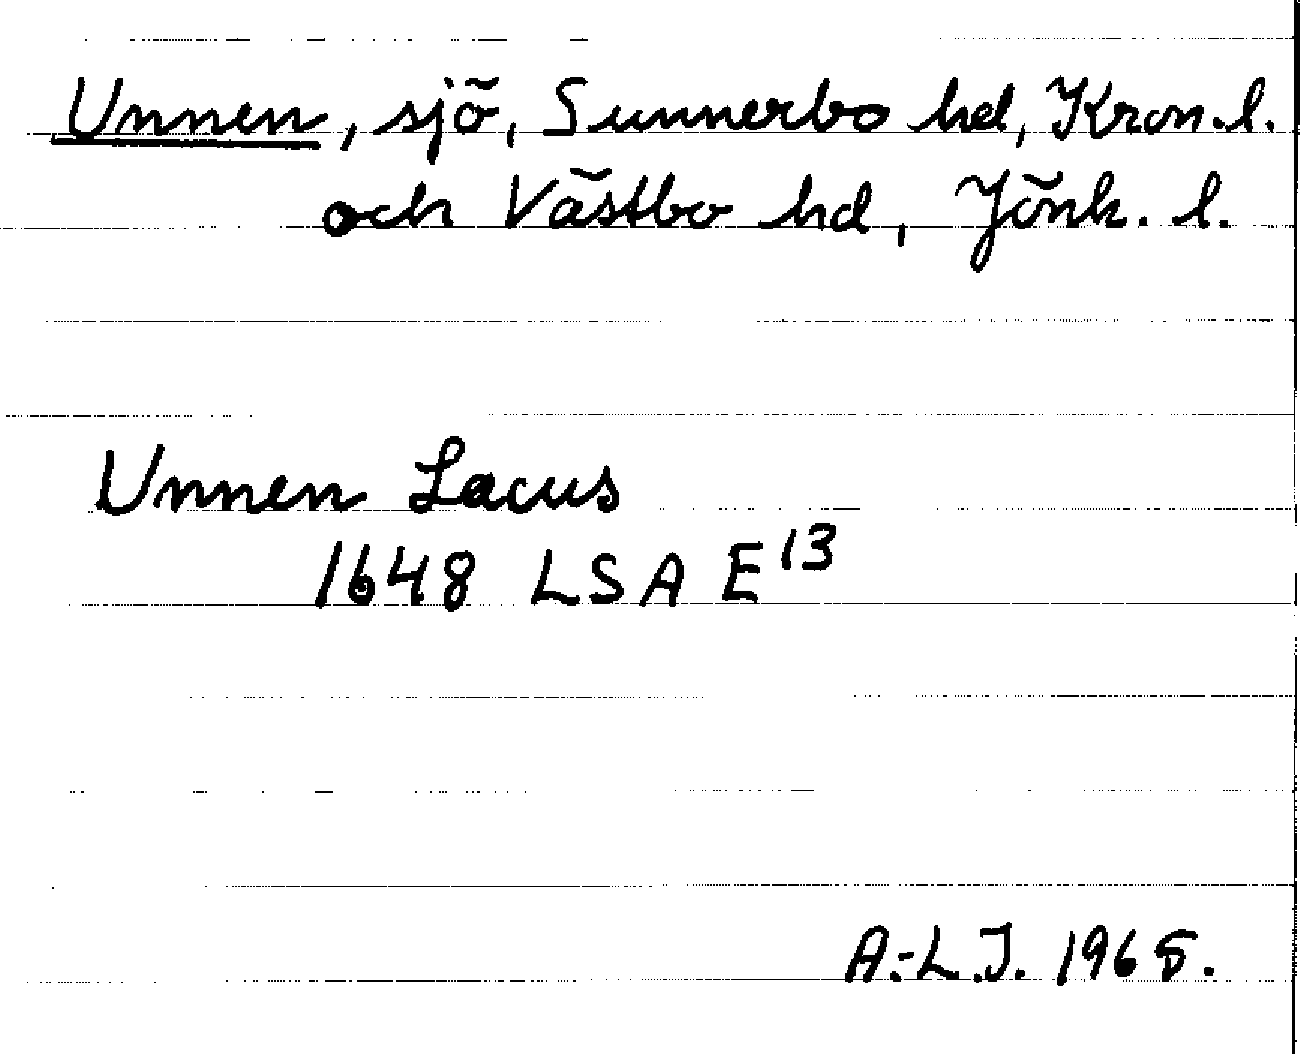 Unnen, sjö, Sunnerbo hd, Kron. l.
och Västbo hd, Jönk. l.
Unnen Lacus
1648 LSA E¹³
A.-L.J. 1968.